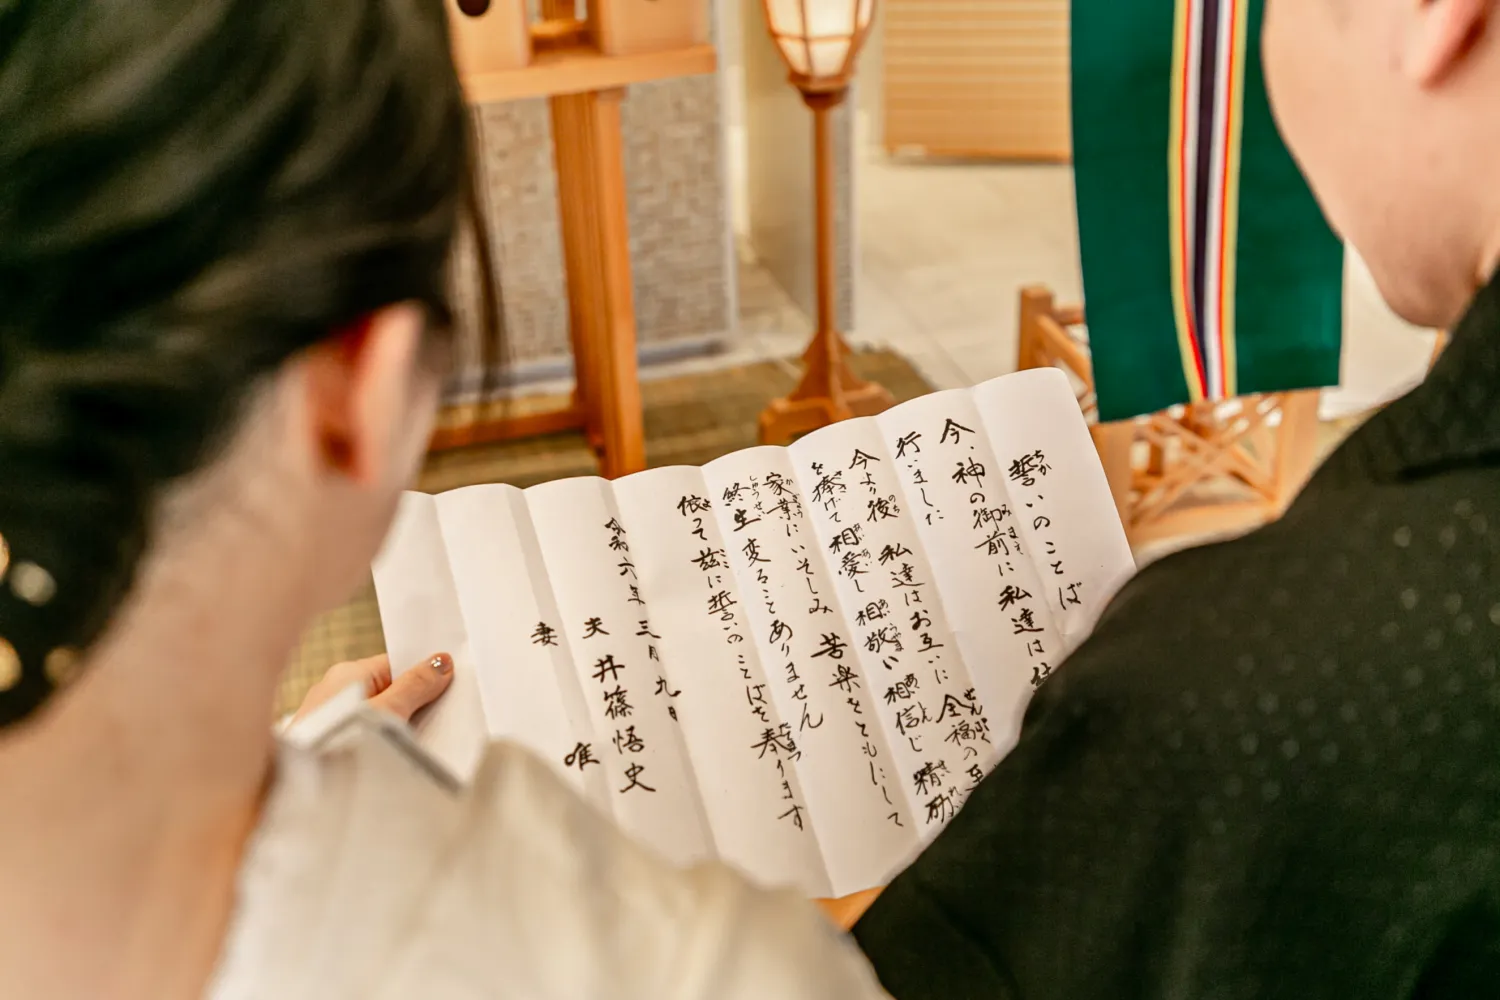 誓いのことば
今、神の御前に私達は
行いました
今より後 私達はお互いに 全福の至
を捧げて相愛し 相敬い 相信じ 精励
家業にいそしみ 苦楽をともにして
終生変ることありません
依って茲に誓いのことばを奉ります
令和六年三月九日
夫 井篠悟史
妻 唯